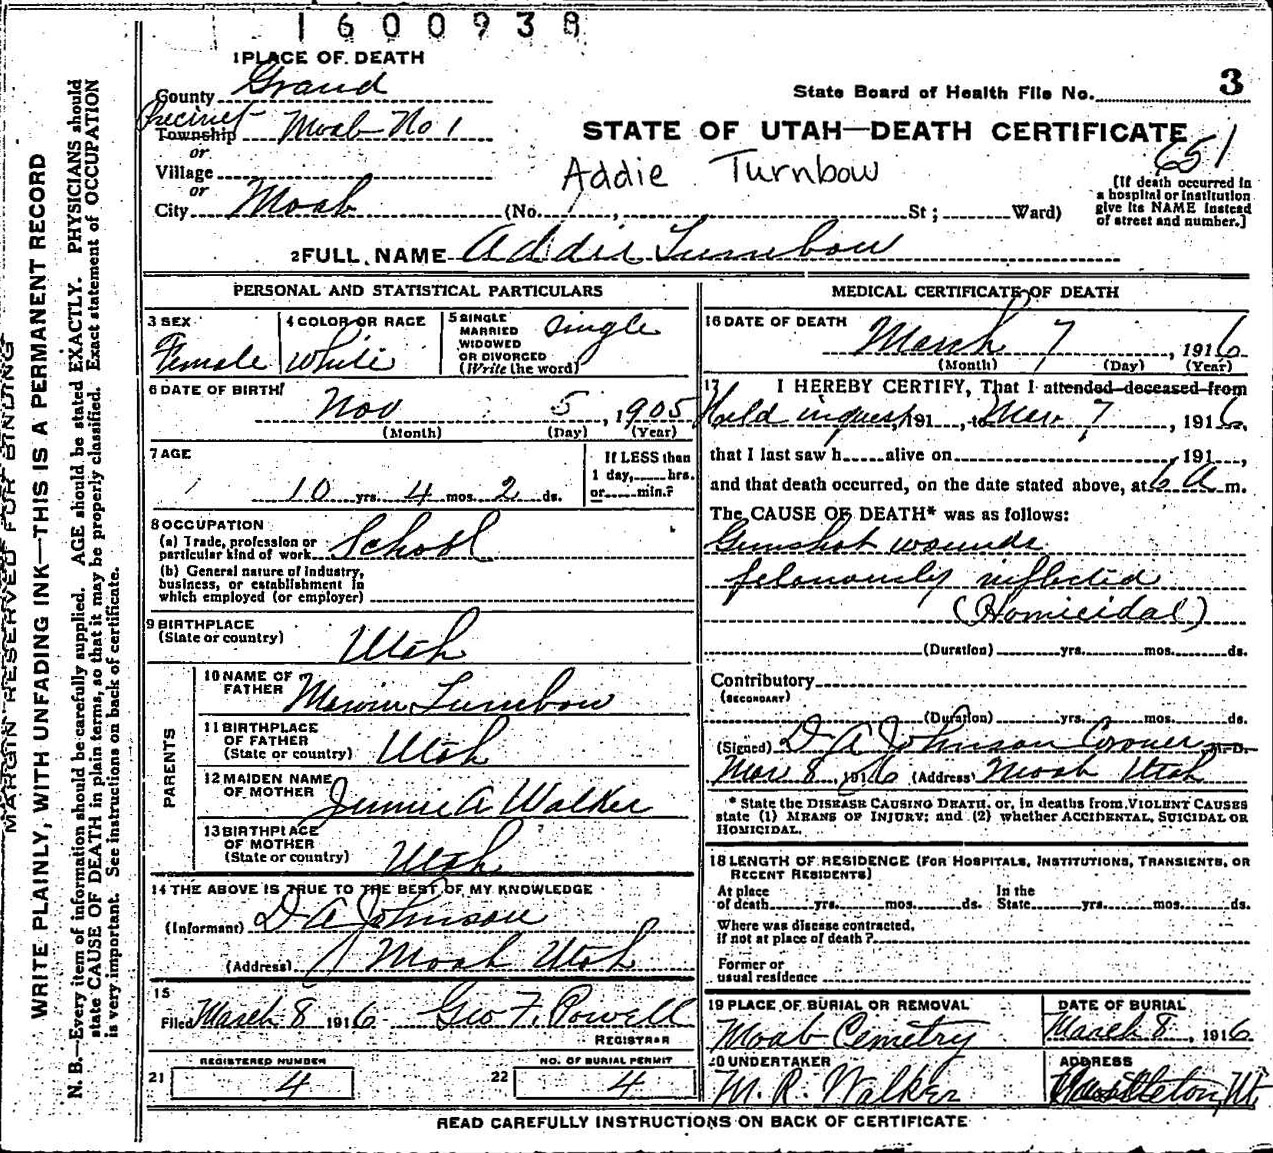 1600938
1 PLACE OF DEATH
County Grand
State Board of Health File No. 3
Precinct Moab No 1
Township
or
Village
or
City Moab (No. , St; Ward)
STATE OF UTAH—DEATH CERTIFICATE
651
Addie Turnbow
[If death occurred in
a hospital or institution
give its NAME instead
of street and number.]
2 FULL NAME Addie Turnbow
PERSONAL AND STATISTICAL PARTICULARS
3 SEX Female
4 COLOR OR RACE White
5 SINGLE
MARRIED
WIDOWED
OR DIVORCED
(Write the word) Single
6 DATE OF BIRTH
Nov 5, 1905
(Month) (Day) (Year)
7 AGE
10 yrs. 4 mos. 2 ds.
If LESS than
1 day, hrs.
or min.?
8 OCCUPATION
(a) Trade, profession or
particular kind of work School
(b) General nature of industry,
business, or establishment in
which employed (or employer)
9 BIRTHPLACE
(State or country) Utah
PARENTS
10 NAME OF
FATHER Turnbow
11 BIRTHPLACE
OF FATHER
(State or country) Utah
12 MAIDEN NAME
OF MOTHER Jennie A Walker
13 BIRTHPLACE
OF MOTHER
(State or country) Utah
14 THE ABOVE IS TRUE TO THE BEST OF MY KNOWLEDGE
(Informant) D A Johnson
(Address) Moab Utah
15
Filed March 8 1916 Geo F. Powell
REGISTRAR
REGISTERED NUMBER
21 4
NO. OF BURIAL PERMIT
22 4
MEDICAL CERTIFICATE OF DEATH
16 DATE OF DEATH
March 7, 1916
(Month) (Day) (Year)
17 I HEREBY CERTIFY, That I attended deceased from
Held inquest, 191 , to Mar. 7, 1916,
that I last saw h alive on , 191 ,
and that death occurred, on the date stated above, at 6 A m.
The CAUSE OF DEATH* was as follows:
Gunshot wounds
feloniously inflicted
(Homicidal)
(Duration) yrs. mos. ds.
Contributory
(SECONDARY)
(Duration) yrs. mos. ds.
(Signed) D A Johnson Coroner M.D.
Mar 8, 1916 (Address) Moab Utah
* State the DISEASE CAUSING DEATH, or, in deaths from VIOLENT CAUSES
state (1) MEANS OF INJURY; and (2) whether ACCIDENTAL, SUICIDAL OR
HOMICIDAL.
18 LENGTH OF RESIDENCE (FOR HOSPITALS, INSTITUTIONS, TRANSIENTS, OR
RECENT RESIDENTS)
At place
of death yrs. mos. ds.
In the
State yrs. mos. ds.
Where was disease contracted,
if not at place of death?
Former or
usual residence
19 PLACE OF BURIAL OR REMOVAL
Moab Cemetry
DATE OF BURIAL
March 8, 1916
20 UNDERTAKER
M. R. Walker
ADDRESS
Castleton, Ut
READ CAREFULLY INSTRUCTIONS ON BACK OF CERTIFICATE
MARGIN RESERVED FOR BINDING
WRITE PLAINLY, WITH UNFADING INK—THIS IS A PERMANENT RECORD
N. B.—Every item of information should be carefully supplied. AGE should be stated EXACTLY. PHYSICIANS should
state CAUSE OF DEATH in plain terms, so that it may be properly classified. Exact statement of OCCUPATION
is very important. See instructions on back of certificate.